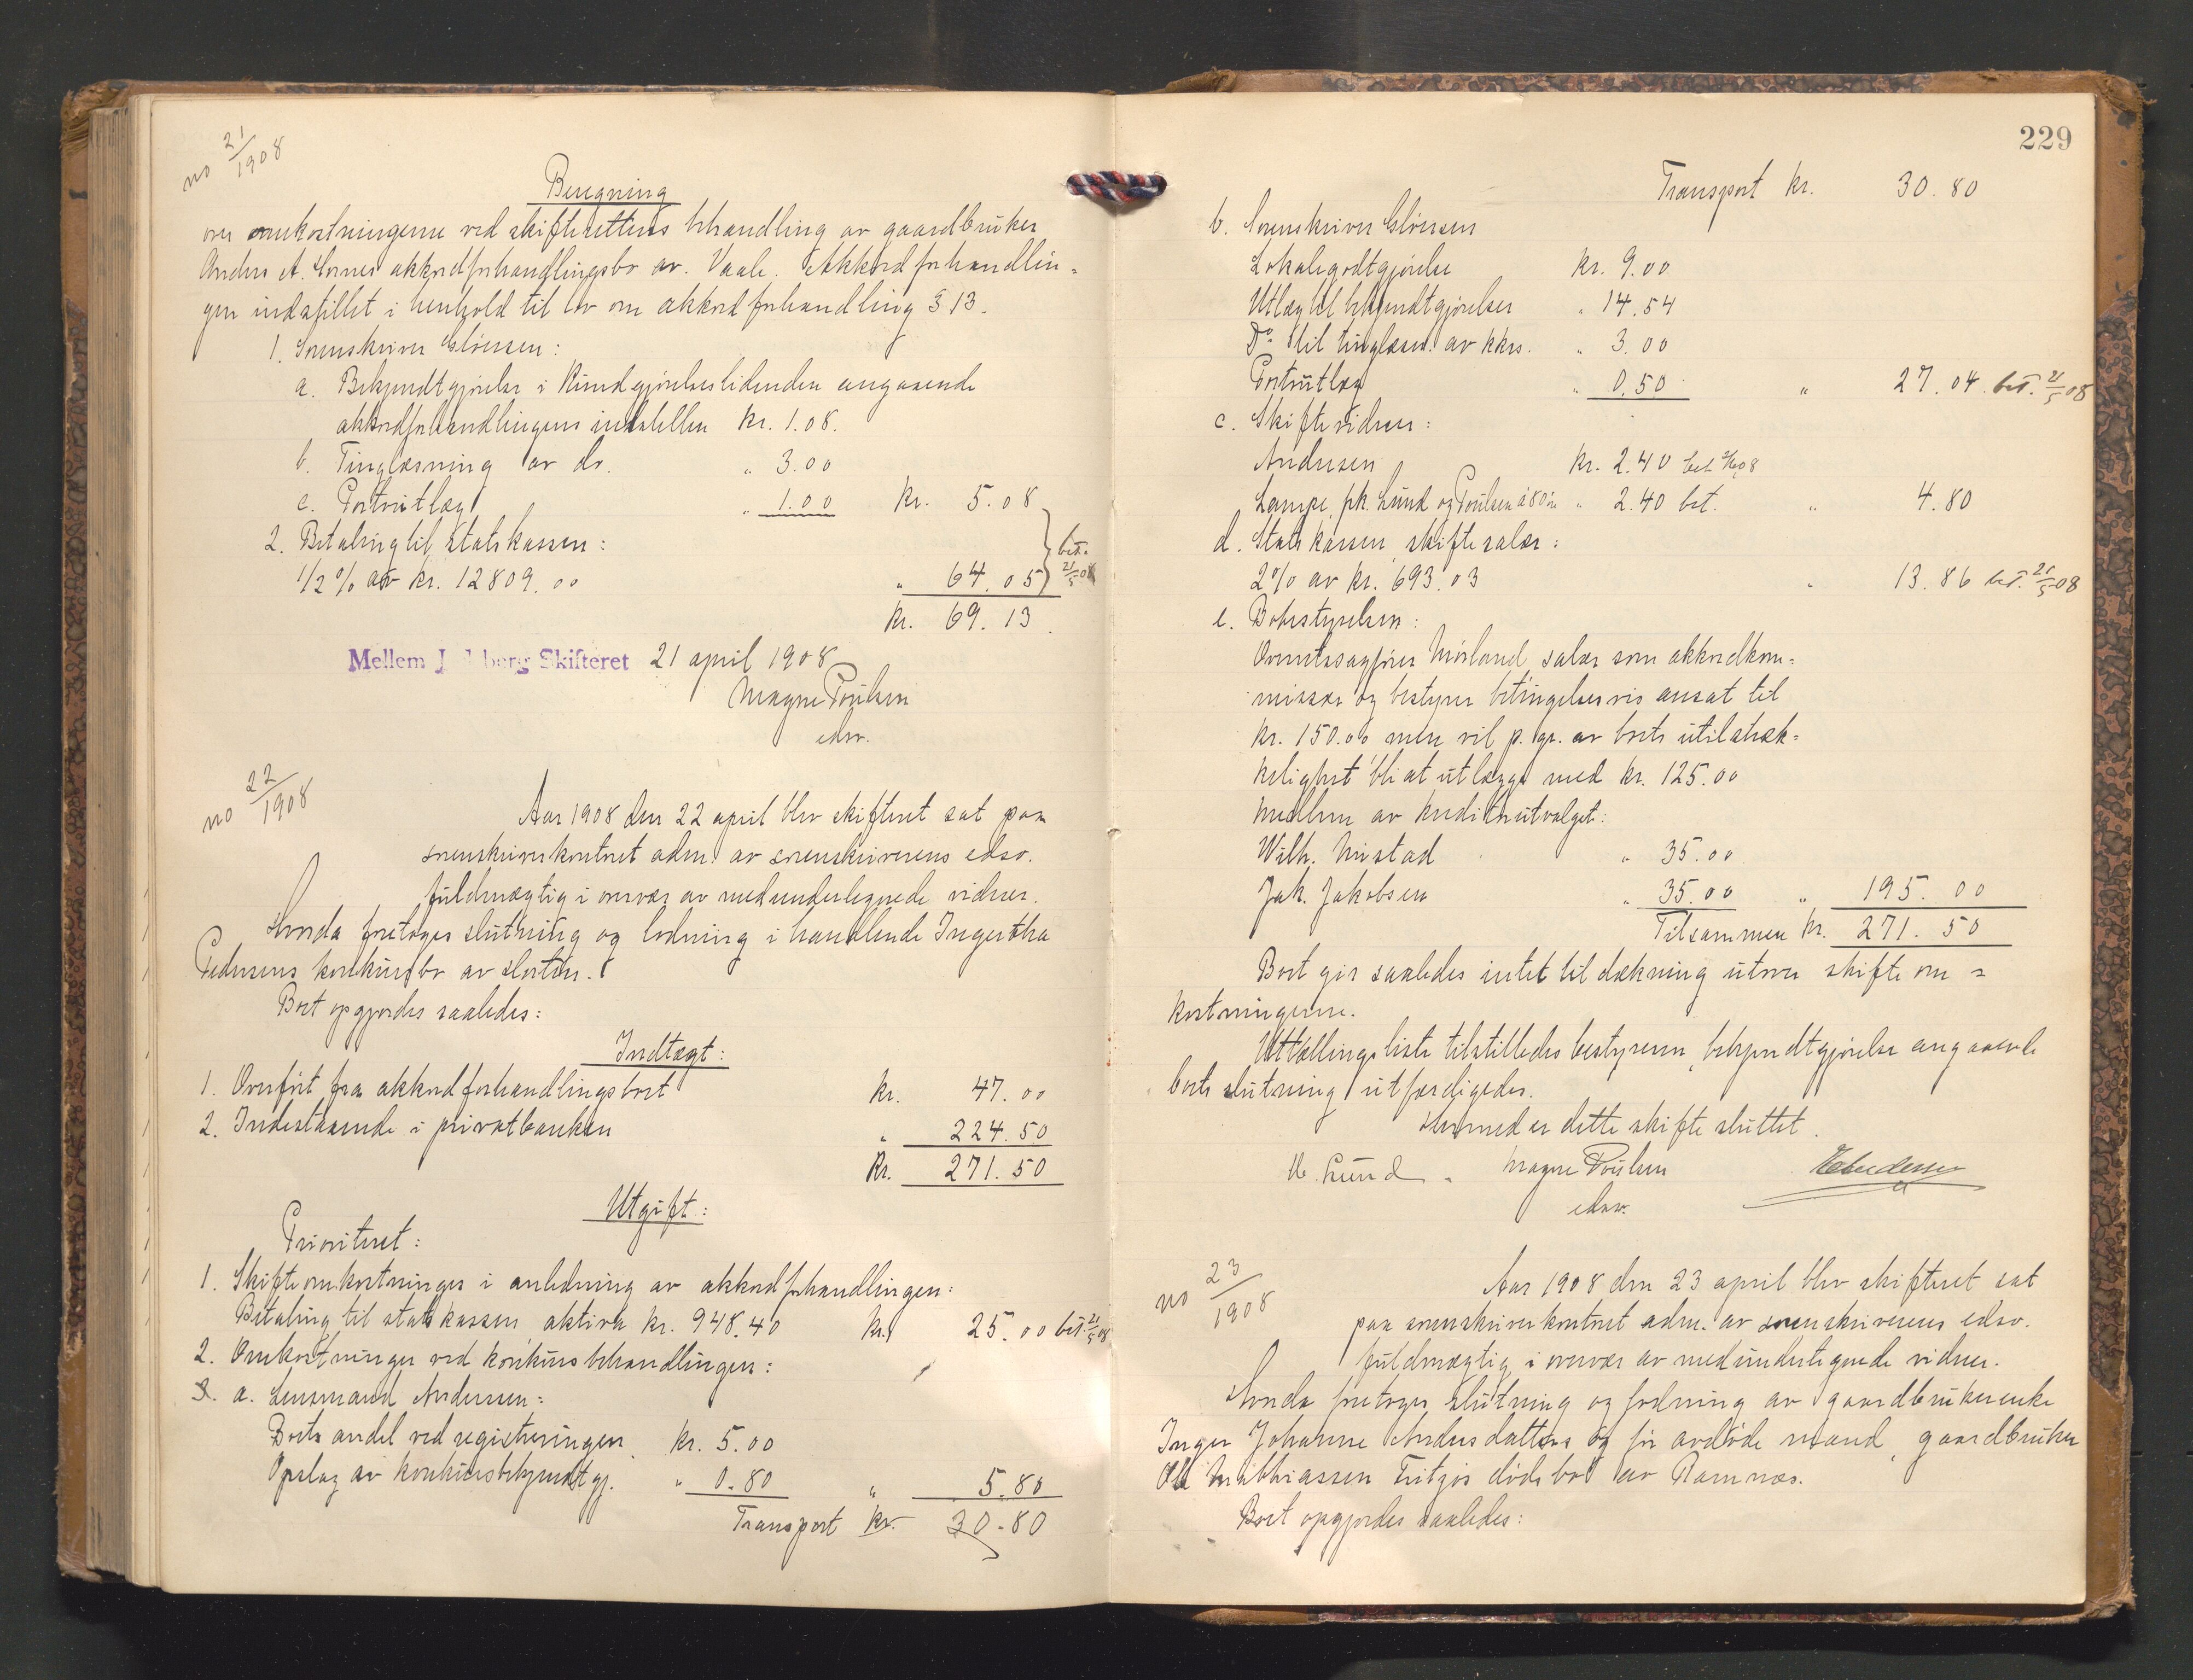 no 21/1908
Beregning
over omkostningerne ved skifterettens behandling av gaardbruker
Anders A. Sornes akkordforhandlingsbo av Vaale. Akkordforhandlin-
gen indstillet i henhold til lov om akkordforhandling § 13.
1. Sorenskriver :
a. Bekjendtgjørelse i Kundgjørelsestidenden angaaende
akkordforhandlingens indstillen kr. 1.08.
b. Tinglæsning av do. " 3.00
c. Portoutlæg " 1.00 kr. 5.08
2. Betaling til statskassen:
1/2 % av kr. 12809.00 " 64.05 } bet. 21/5 08
kr. 69.13
Mellem J l berg Skifteret 21 april 1908
Magne Poulsen
edsv.
no 22/1908
Aar 1908 den 22 april blev skifteret sat paa
sorenskriverkontoret adm. av sorenskriverens edsv.
fuldmægtig i overvær av medundertegnede vidner.
Hvorda foretoges slutning og lodning i handlende Ingertha
Pedersens konkursbo av Horten.
Boet opgjordes saaledes:
Indtægt:
1. Overført fra akkordforhandlingsboet kr. 47.00
2. Indestaaende i privatbanken " 224.50
Kr. 271.50
Utgift:
Prioritert:
1. Skifteomkostninger i anledning av akkordforhandlingen:
Betaling til statskassen aktiva kr. 948.40 kr. 25.00 bet. 21/5 08
2. Omkostninger ved konkursbehandlingen:
a. Lensmand Andersen:
Boets andel ved registreringen kr. 5.00
Opslag av konkursbekjendtgj. " 0.80 " 5.80
Transport kr. 30.80
229
Transport kr. 30.80
b. Sorenskriver
Lokalegodtgjørelse kr. 9.00
Utlæg til bekjendtgjørelser " 14.54
Do til tinglæsn. av kkrs. " 3.00
Portoutlæg " 0.50 " 27.04 bet. 21/5 08
c. Skiftevidner:
Andersen kr. 2.40 bet
Lampe, pk. Lund og Poulsen à 80 " 2.40 bet. " 4.80
d. Statskassen skiftesalær:
2% av kr. 693.03 " 13.86 bet. 21/5 08
e. Bobestyrelsen:
Overretssagfører Mørland, salær som akkordkom-
missær og bestyrer betingelsesvis ansat til
kr. 150.00 men vil p. gr. av boets utilstræk-
kelighet bli at utlægge med kr. 125.00
Medlem av kreditorutvalget:
Wilh. Mustad " 35.00
Jak. Jakobsen " 35.00 " 195.00
Tilsammen kr. 271.50
Boet gir saaledes intet til dækning utover skifteom-
kostningerne.
Uttællingsliste tilstilledes bestyreren, bekjendtgjørelse angaaende
boets slutning utfærdigedes.
Hermed er dette skifte sluttet.
Lund Magne Poulsen
edsv.
no 23/1908
Aar 1908 den 23 april blev skifteret sat
paa sorenskriverkontoret adm. av sorenskriverens edsv.
fuldmægtig i overvær av medundertegnede vidner.
Hvorda foretoges slutning og lodning av gaardbrukerenke
Inger Johanne Andersdatters og før avdøde mand, gaardbruker
Ole Mathiassen dødsbo av Ramnæs.
Boet opgjordes saaledes: